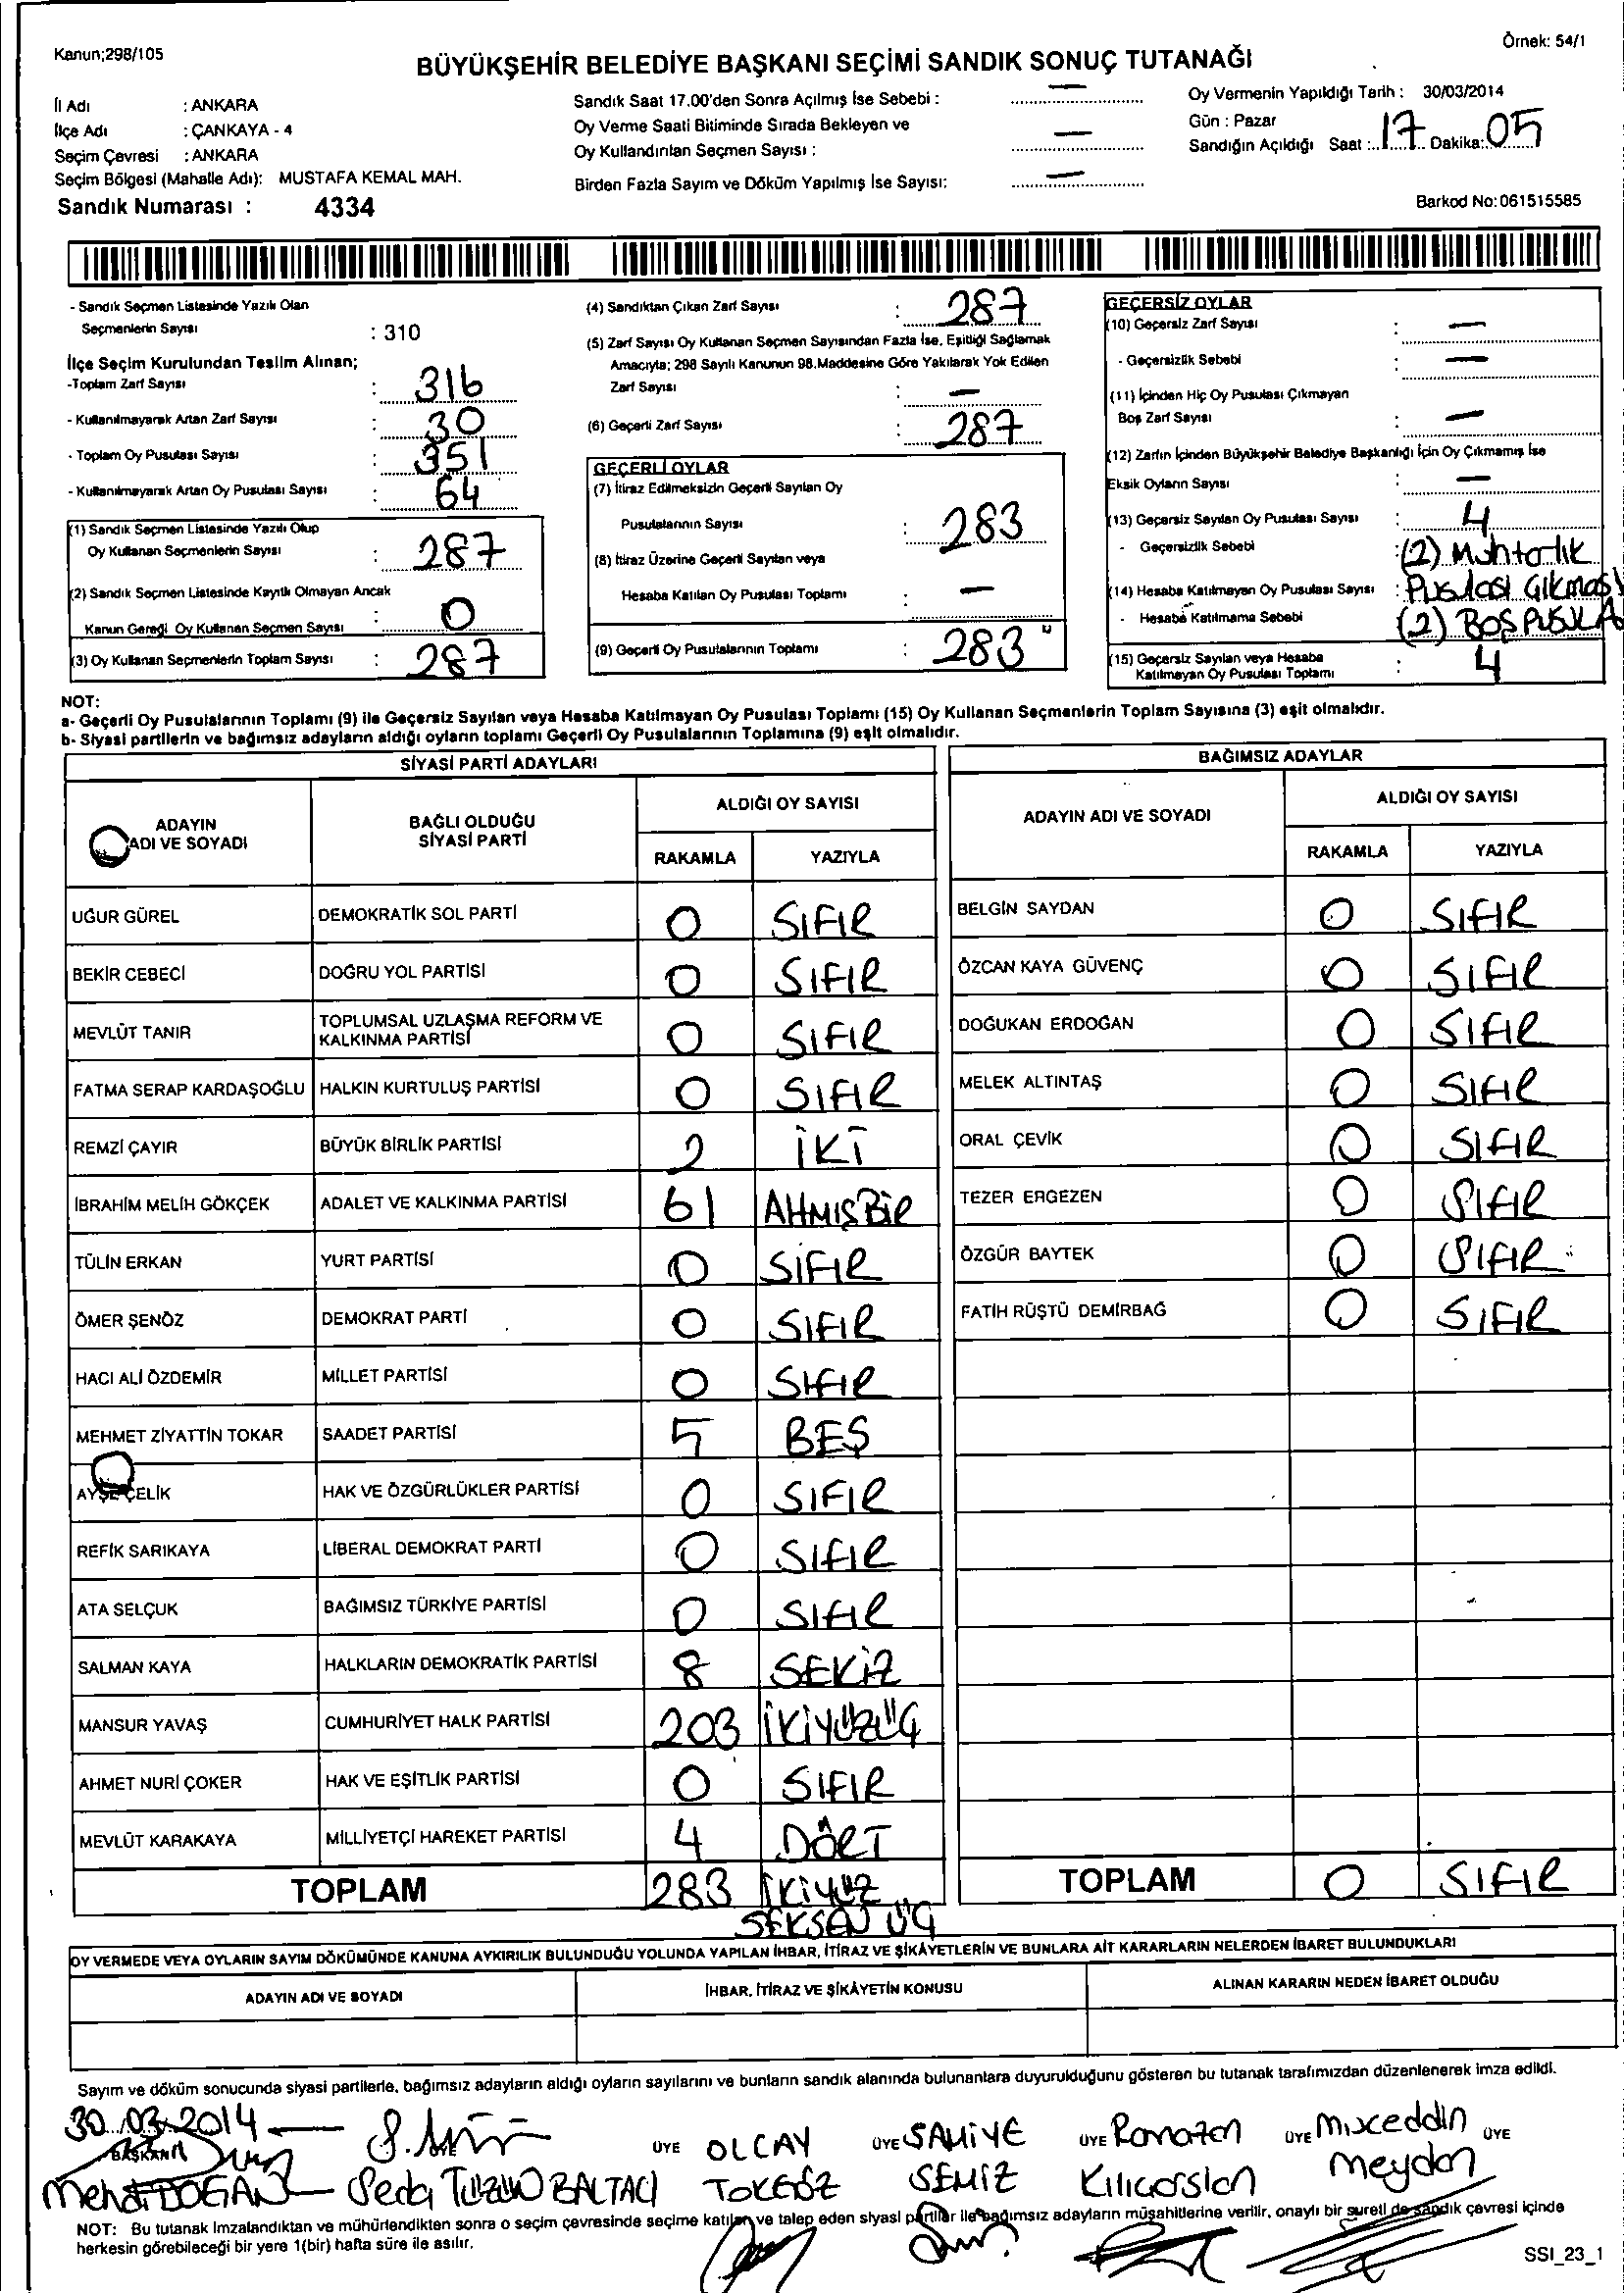 Kanun;298/105
Örnek: 54/1
BÜYÜKŞEHİR BELEDİYE BAŞKANI SEÇİMİ SANDIK SONUÇ TUTANAĞI
İl Adı : ANKARA
İlçe Adı : ÇANKAYA - 4
Seçim Çevresi : ANKARA
Seçim Bölgesi (Mahalle Adı): MUSTAFA KEMAL MAH.
Sandık Numarası : 4334
Sandık Saat 17.00'den Sonra Açılmış İse Sebebi : —
Oy Verme Saati Bitiminde Sırada Bekleyen ve
Oy Kullandırılan Seçmen Sayısı : —
Birden Fazla Sayım ve Döküm Yapılmış İse Sayısı: —
Oy Vermenin Yapıldığı Tarih : 30/03/2014
Gün : Pazar
Sandığın Açıldığı Saat : 17 Dakika: 05
Barkod No:061515585
- Sandık Seçmen Listesinde Yazılı Olan
Seçmenlerin Sayısı : 310
İlçe Seçim Kurulundan Teslim Alınan;
-Toplam Zarf Sayısı : 316
- Kullanılmayarak Artan Zarf Sayısı : 30
- Toplam Oy Pusulası Sayısı : 351
- Kullanılmayarak Artan Oy Pusulası Sayısı : 64
(1) Sandık Seçmen Listesinde Yazılı Olup
Oy Kullanan Seçmenlerin Sayısı : 287
(2) Sandık Seçmen Listesinde Kayıtlı Olmayan Ancak
Kanun Gereği Oy Kullanan Seçmen Sayısı : 0
(3) Oy Kullanan Seçmenlerin Toplam Sayısı : 287
(4) Sandıktan Çıkan Zarf Sayısı : 287
(5) Zarf Sayısı Oy Kullanan Seçmen Sayısından Fazla İse, Eşitliği Sağlamak
Amacıyla; 298 Sayılı Kanunun 98.Maddesine Göre Yakılarak Yok Edilen
Zarf Sayısı : —
(6) Geçerli Zarf Sayısı : 287
GEÇERLİ OYLAR
(7) İtiraz Edilmeksizin Geçerli Sayılan Oy
Pusulalarının Sayısı : 283
(8) İtiraz Üzerine Geçerli Sayılan veya
Hesaba Katılan Oy Pusulası Toplamı : —
(9) Geçerli Oy Pusulalarının Toplamı : 283
GEÇERSİZ OYLAR
(10) Geçersiz Zarf Sayısı : —
- Geçersizlik Sebebi : —
(11) İçinden Hiç Oy Pusulası Çıkmayan
Boş Zarf Sayısı : —
(12) Zarfın İçinden Büyükşehir Belediye Başkanlığı İçin Oy Çıkmamış İse
Eksik Oyların Sayısı : —
(13) Geçersiz Sayılan Oy Pusulası Sayısı : 4
- Geçersizlik Sebebi : (2) Muhtarlık
(14) Hesaba Katılmayan Oy Pusulası Sayısı : Pusulası Çıkması
- Hesaba Katılmama Sebebi (2) BOŞ PUSULA
(15) Geçersiz Sayılan veya Hesaba
Katılmayan Oy Pusulası Toplamı : 4
NOT:
a- Geçerli Oy Pusulalarının Toplamı (9) ile Geçersiz Sayılan veya Hesaba Katılmayan Oy Pusulası Toplamı (15) Oy Kullanan Seçmenlerin Toplam Sayısına (3) eşit olmalıdır.
b- Siyasi partilerin ve bağımsız adayların aldığı oyların toplamı Geçerli Oy Pusulalarının Toplamına (9) eşit olmalıdır.
SİYASİ PARTİ ADAYLARI
ADAYIN
ADI VE SOYADI
BAĞLI OLDUĞU
SİYASİ PARTİ
ALDIĞI OY SAYISI
RAKAMLA YAZIYLA
UĞUR GÜREL DEMOKRATİK SOL PARTİ 0 SIFIR
BEKİR CEBECİ DOĞRU YOL PARTİSİ 0 SIFIR
MEVLÜT TANIR TOPLUMSAL UZLAŞMA REFORM VE
KALKINMA PARTİSİ 0 SIFIR
FATMA SERAP KARDAŞOĞLU HALKIN KURTULUŞ PARTİSİ 0 SIFIR
REMZİ ÇAYIR BÜYÜK BİRLİK PARTİSİ 2 İKİ
İBRAHİM MELİH GÖKÇEK ADALET VE KALKINMA PARTİSİ 61 ALTMIŞBİR
TÜLİN ERKAN YURT PARTİSİ 0 SIFIR
ÖMER ŞENÖZ DEMOKRAT PARTİ 0 SIFIR
HACI ALİ ÖZDEMİR MİLLET PARTİSİ 0 SIFIR
MEHMET ZİYATTİN TOKAR SAADET PARTİSİ 5 BEŞ
AYŞE ÇELİK HAK VE ÖZGÜRLÜKLER PARTİSİ 0 SIFIR
REFİK SARIKAYA LİBERAL DEMOKRAT PARTİ 0 SIFIR
ATA SELÇUK BAĞIMSIZ TÜRKİYE PARTİSİ 0 SIFIR
SALMAN KAYA HALKLARIN DEMOKRATİK PARTİSİ 8 SEKİZ
MANSUR YAVAŞ CUMHURİYET HALK PARTİSİ 203 İKİYÜZÜÇ
AHMET NURİ ÇOKER HAK VE EŞİTLİK PARTİSİ 0 SIFIR
MEVLÜT KARAKAYA MİLLİYETÇİ HAREKET PARTİSİ 4 DÖRT
TOPLAM 283 İKİYÜZ
SEKSEN ÜÇ
BAĞIMSIZ ADAYLAR
ADAYIN ADI VE SOYADI
ALDIĞI OY SAYISI
RAKAMLA YAZIYLA
BELGİN SAYDAN 0 SIFIR
ÖZCAN KAYA GÜVENÇ 0 SIFIR
DOĞUKAN ERDOĞAN 0 SIFIR
MELEK ALTINTAŞ 0 SIFIR
ORAL ÇEVİK 0 SIFIR
TEZER ERGEZEN 0 SIFIR
ÖZGÜR BAYTEK 0 SIFIR
FATİH RÜŞTÜ DEMİRBAĞ 0 SIFIR
TOPLAM 0 SIFIR
OY VERMEDE VEYA OYLARIN SAYIM DÖKÜMÜNDE KANUNA AYKIRILIK BULUNDUĞU YOLUNDA YAPILAN İHBAR, İTİRAZ VE ŞİKÂYETLERİN VE BUNLARA AİT KARARLARIN NELERDEN İBARET BULUNDUKLARI
ADAYIN ADI VE SOYADI İHBAR, İTİRAZ VE ŞİKÂYETİN KONUSU ALINAN KARARIN NEDEN İBARET OLDUĞU
Sayım ve döküm sonucunda siyasi partilerle, bağımsız adayların aldığı oyların sayılarını ve bunların sandık alanında bulunanlara duyurulduğunu gösteren bu tutanak tarafımızdan düzenlenerek imza edildi.
30.03.2014
BAŞKAN ÜYE OLCAY ÜYE SAMİYE ÜYE Ramazan ÜYE Muceddin ÜYE
Mehdi DOĞAN Seda TÜZÜN BALTACI TOKGÖZ SEMİZ Kılıcarslan Meydan
NOT: Bu tutanak İmzalandıktan ve mühürlendikten sonra o seçim çevresinde seçime katılan ve talep eden siyasi partiler ile bağımsız adayların müşahitlerine verilir, onaylı bir sureti de sandık çevresi içinde
herkesin görebileceği bir yere 1(bir) hafta süre ile asılır.
SSI_23_1